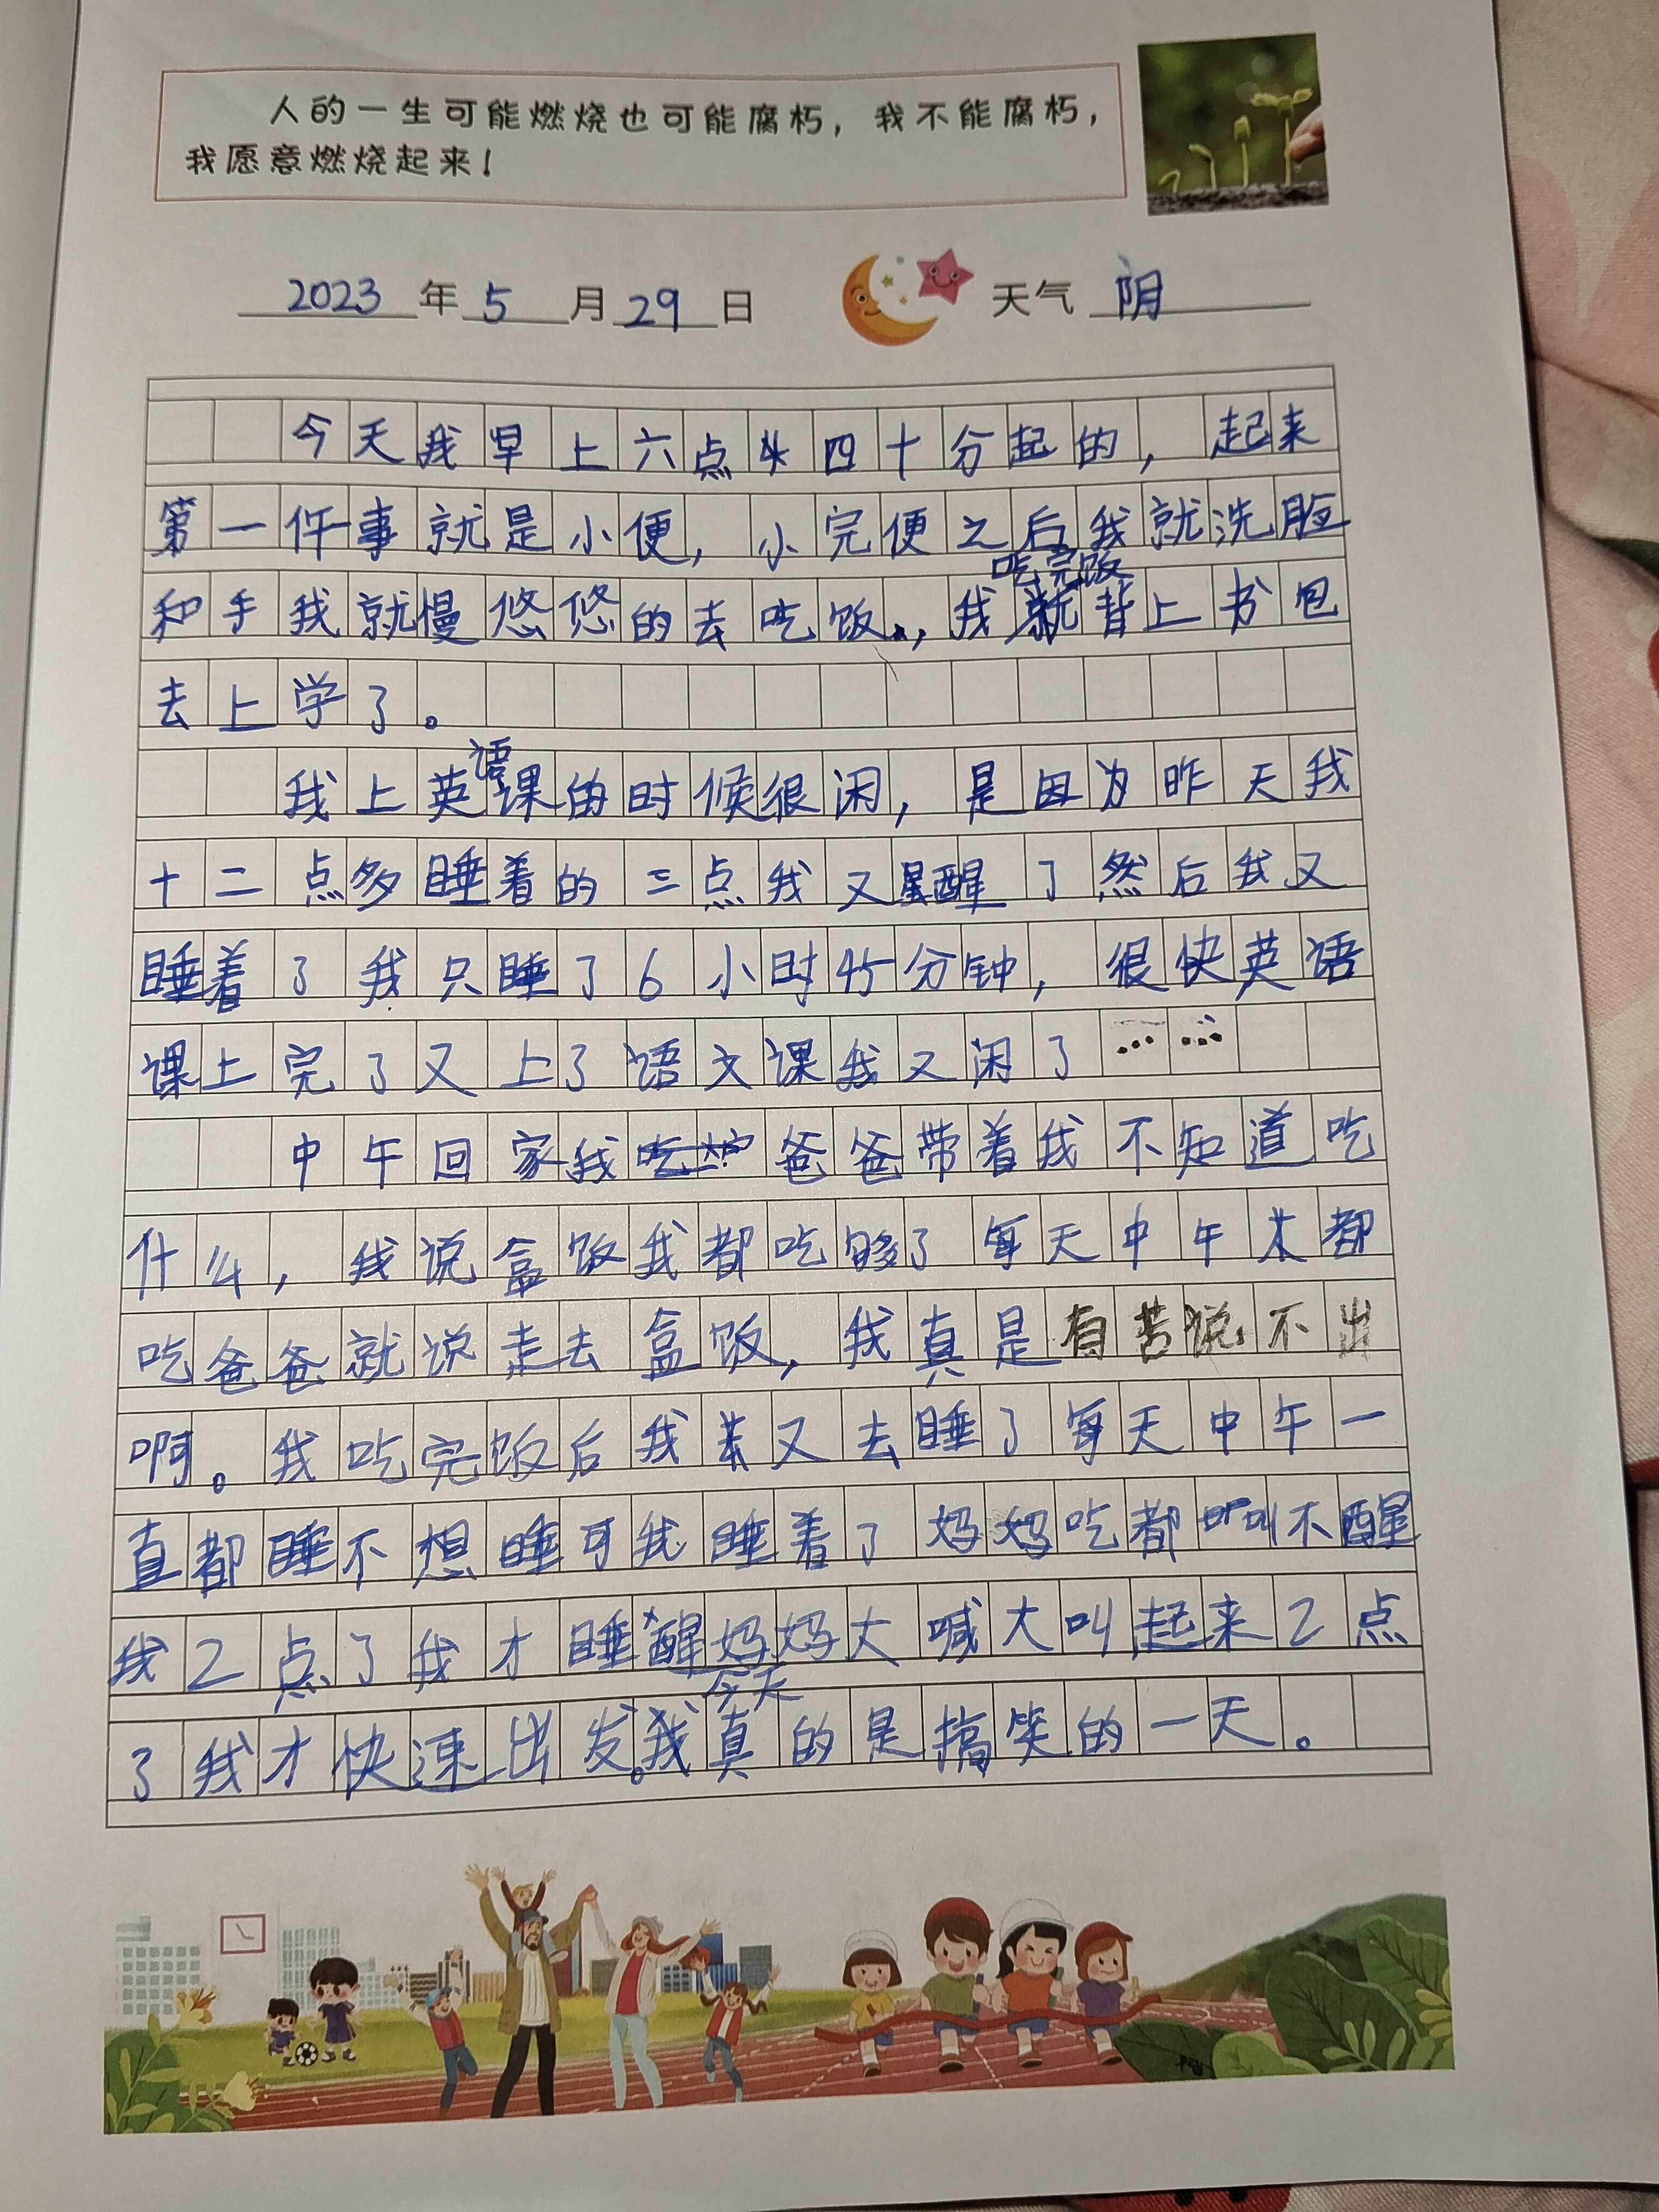 人的一生可能燃烧也可能腐朽，我不能腐朽，
我愿意燃烧起来！
2023年5月29日 天气 阴
今天我早上六点四十分起的，起来
第一件事就是小便，小完便之后我就洗脸
和手我就慢悠悠的去吃饭，我吃完饭背上书包
去上学了。
我上英语课的时候很闲，是因为昨天我
十二点多睡着的三点我又醒了然后我又
睡着了我只睡了6小时45分钟，很快英语
课上完了又上了语文课我又闲了……
中午回家我爸爸带着我不知道吃
什么，我说盒饭我都吃够了每天中午都
吃爸爸就说走去盒饭，我真是有苦说不出
啊。我吃完饭后我又去睡了每天中午一
直都睡不想睡可我睡着了妈妈吃都叫不醒
我2点了我才睡醒妈妈大喊大叫起来2点
了我才快速出发。我今天真的是搞笑的一天。